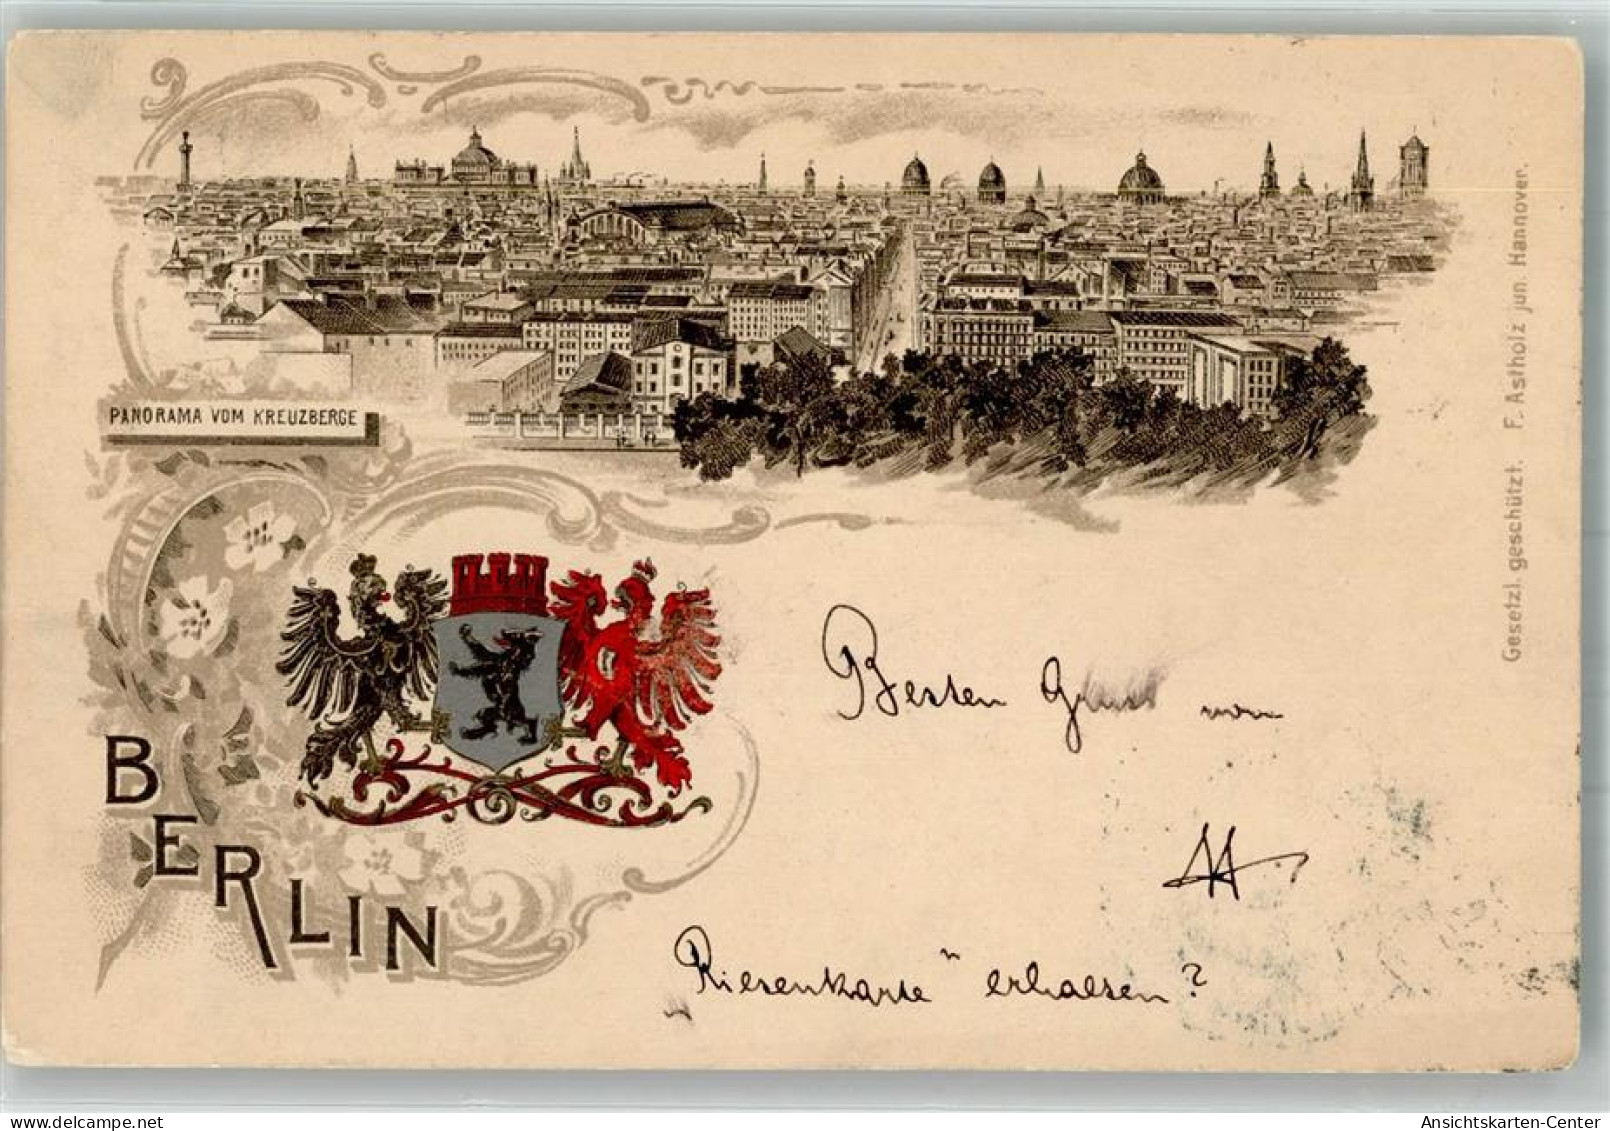 PANORAMA VOM KREUZBERGE
BERLIN
Besten Gruss von
„Riesenkarte" erhalten?
Gesetzl. geschützt. F. Astholz jun. Hannover.
oldthing
Ansichtskarten-Center